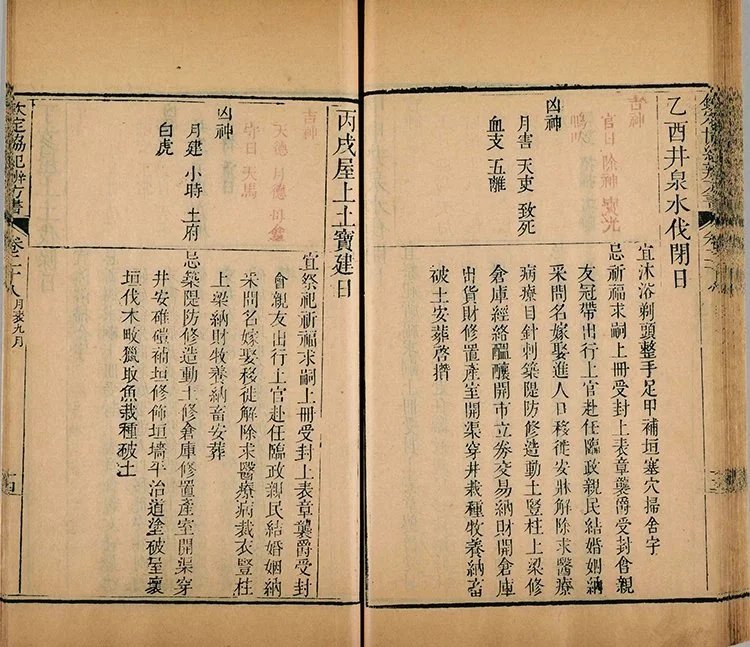 乙酉井泉水伐閉日
吉神
官日 除神 寶光
鳴吠
凶神
月害 天吏 致死
血支 五離
宜沐浴剃頭整手足甲補垣塞穴掃舍宇
忌祈福求嗣上冊受封上表章襲爵受封會親
友冠帶出行上官赴任臨政親民結婚姻納
采問名嫁娶進人口移徙安牀解除求醫療
病療目針刺築隄防修造動土豎柱上梁修
倉庫經絡醞釀開市立券交易納財開倉庫
出貨財修置產室開渠穿井栽種牧養納畜
破土安葬啓攢
丙戌屋上土寶建日
吉神
天德 月德 母倉
守日 天馬
凶神
月建 小時 土府
白虎
宜祭祀祈福求嗣上冊受封上表章襲爵受封
會親友出行上官赴任臨政親民結婚姻納
采問名嫁娶移徙解除求醫療病裁衣豎柱
上梁納財牧養納畜安葬
忌築隄防修造動土修倉庫修置產室開渠穿
井安碓磑補垣修飾垣墻平治道塗破屋壞
垣伐木畋獵取魚栽種破土
欽定協紀辨方書 卷二十八 月表九月 十四